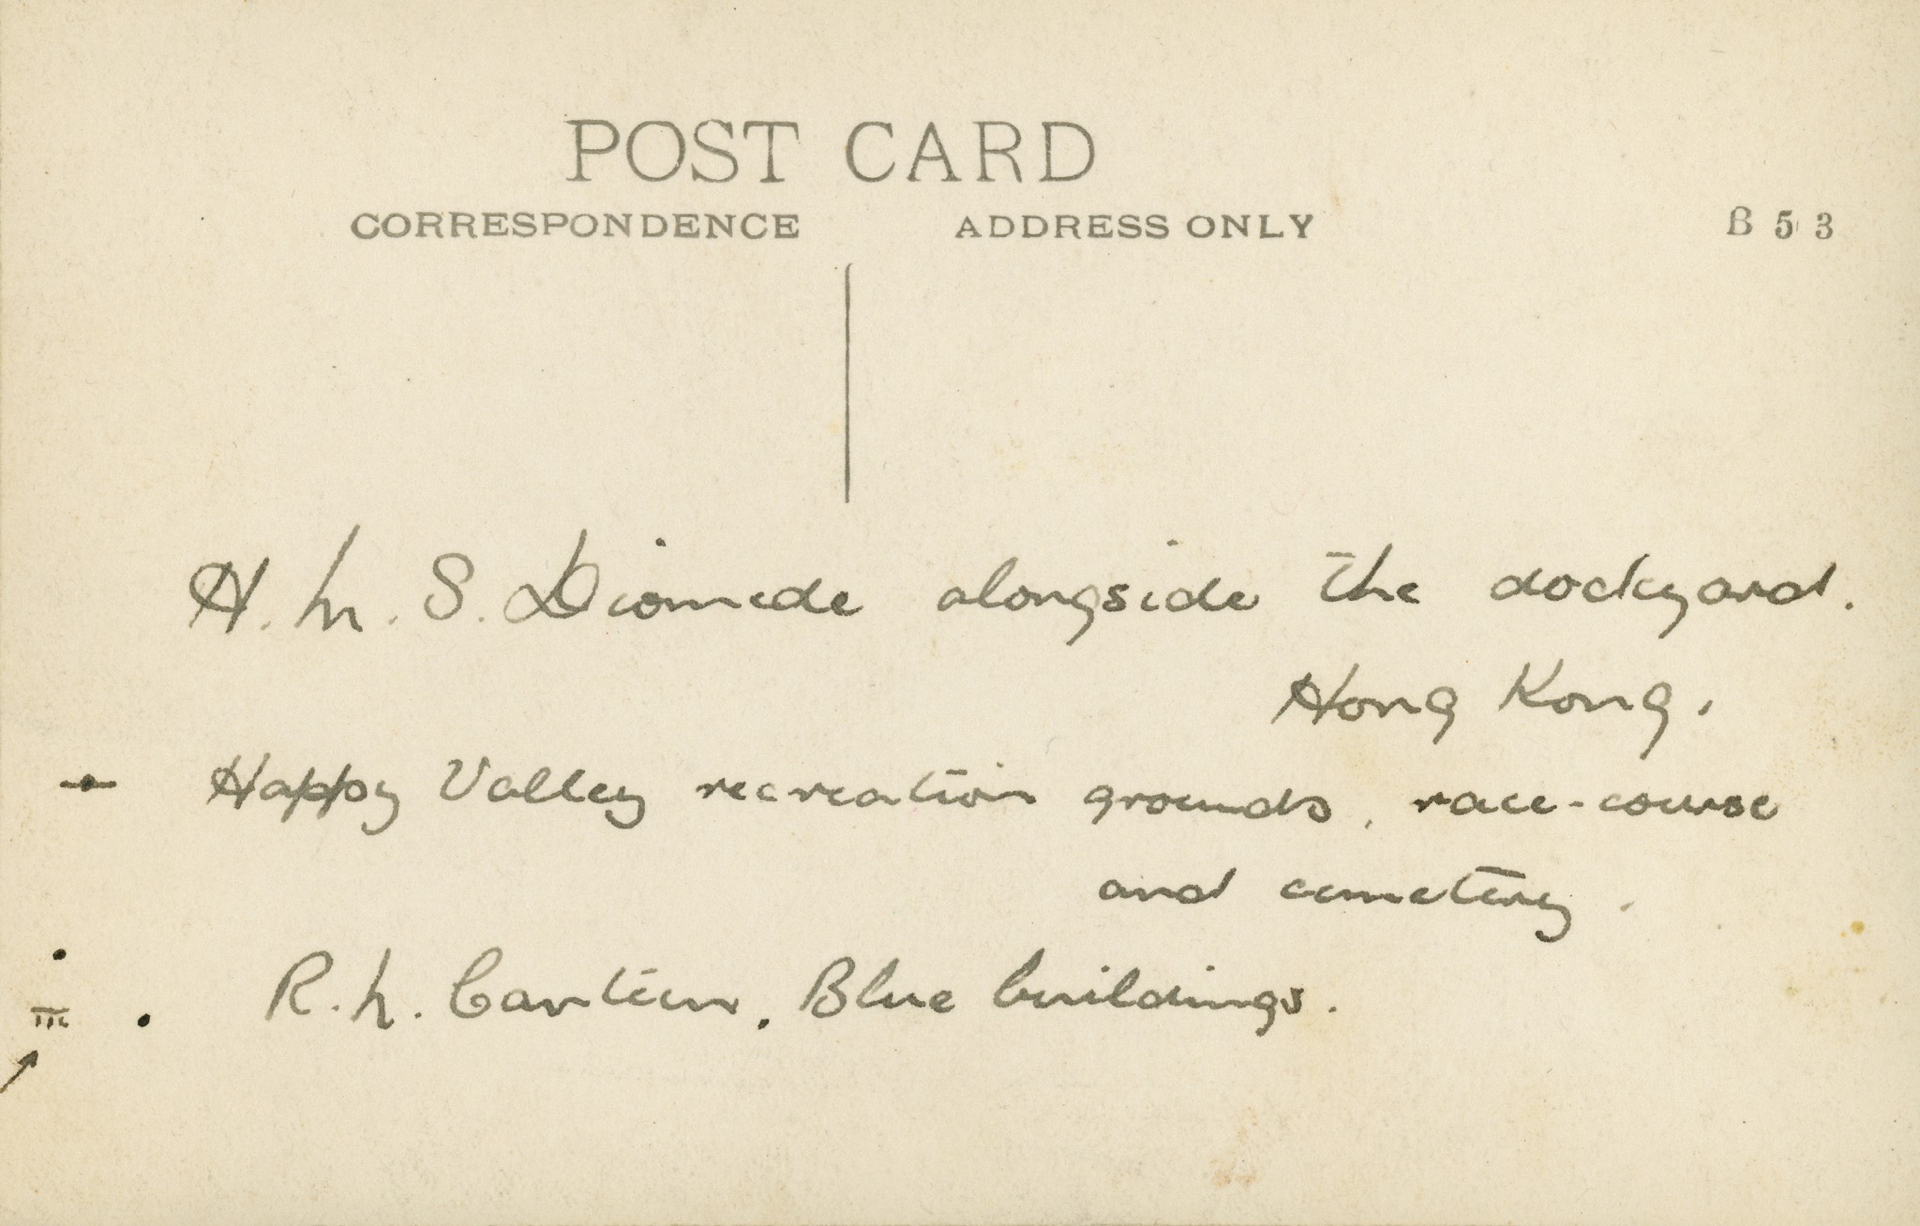 POST CARD
CORRESPONDENCE ADDRESS ONLY B 53
H. M. S. Diomede alongside the dockyard.
Hong Kong.
Happy Valley recreation grounds, race-course
and cemetery.
R. N. Canteen. Blue buildings.